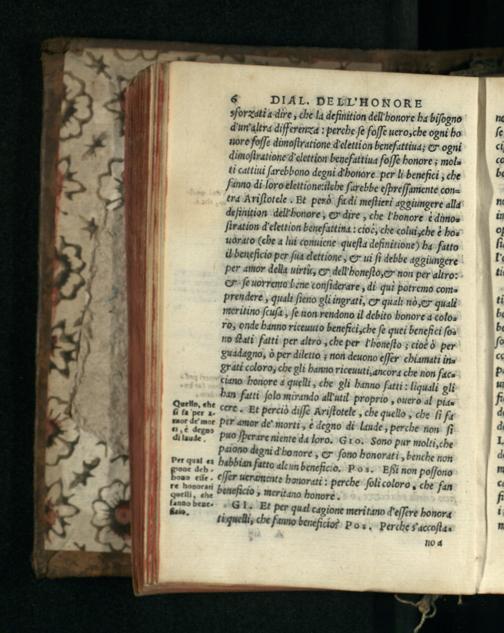 6 DIAL. DELL'HONORE
sforzati a dire, che la definition dell'honore ha bisogno
d'un'altra differenza: perche se fosse uero, che ogni ho
nore fosse dimostratione d'elettion benefattiua; & ogni
dimostratione d'elettion benefattiua fosse honore; mol-
ti cattiui sarebbono degni d'honore per li benefici, che
fanno di loro elettione: ilche sarebbe espressamente con-
tra Aristotele. Et però fa di mestieri aggiungere alla
definition dell'honore, & dire, che l'honore è dimo-
stration d'elettion benefattina: cioè, che colui, che è ho-
uorato (che a lui conuiene questa definitione) ha fatto
il beneficio per sua elettione, & ui si debbe aggiungere
per amor della uirtù, & dell'honesto, & non per altro:
& se uorremo bene considerare, di quì potremo com-
prendere, quali sieno gli ingrati, & quali nò, & quali
meritino scusa, se non rendono il debito honore a colo-
ro, onde hanno riceuuto benefici, che se quei benefici so-
no stati fatti per altro, che per l'honesto; cioè ò per
guadagno, ò per diletto; non deuono esser chiamati in-
grati coloro, che gli hanno riceuuti, ancora che non fac-
ciano honore a quelli, che gli hanno fatti: liquali gli
han fatti solo mirando all'util proprio, ouero al pia-
cere. Et perciò disse Aristotele, che quello, che si fa
per amor de' morti, è degno di laude, perche non si
può sperare niente da loro. GIO. Sono pur molti, che
paiono degni d'honore, & sono honorati, benche non
habbian fatto alcun beneficio. POS. Essi non possono
esser ueramente honorati: perche soli coloro, che fan
beneficio, meritano honore.
GI. Et per qual cagione meritano d'essere honora
ti quelli, che fanno beneficio? POS. Perche s'accosta-
no a
Quello, che
si fa per a-
mor de' mor
ti, è degno
di laude.
Per qual ca
gione deb-
bono esse-
re honorati
quelli, che
fanno bene-
ficio.